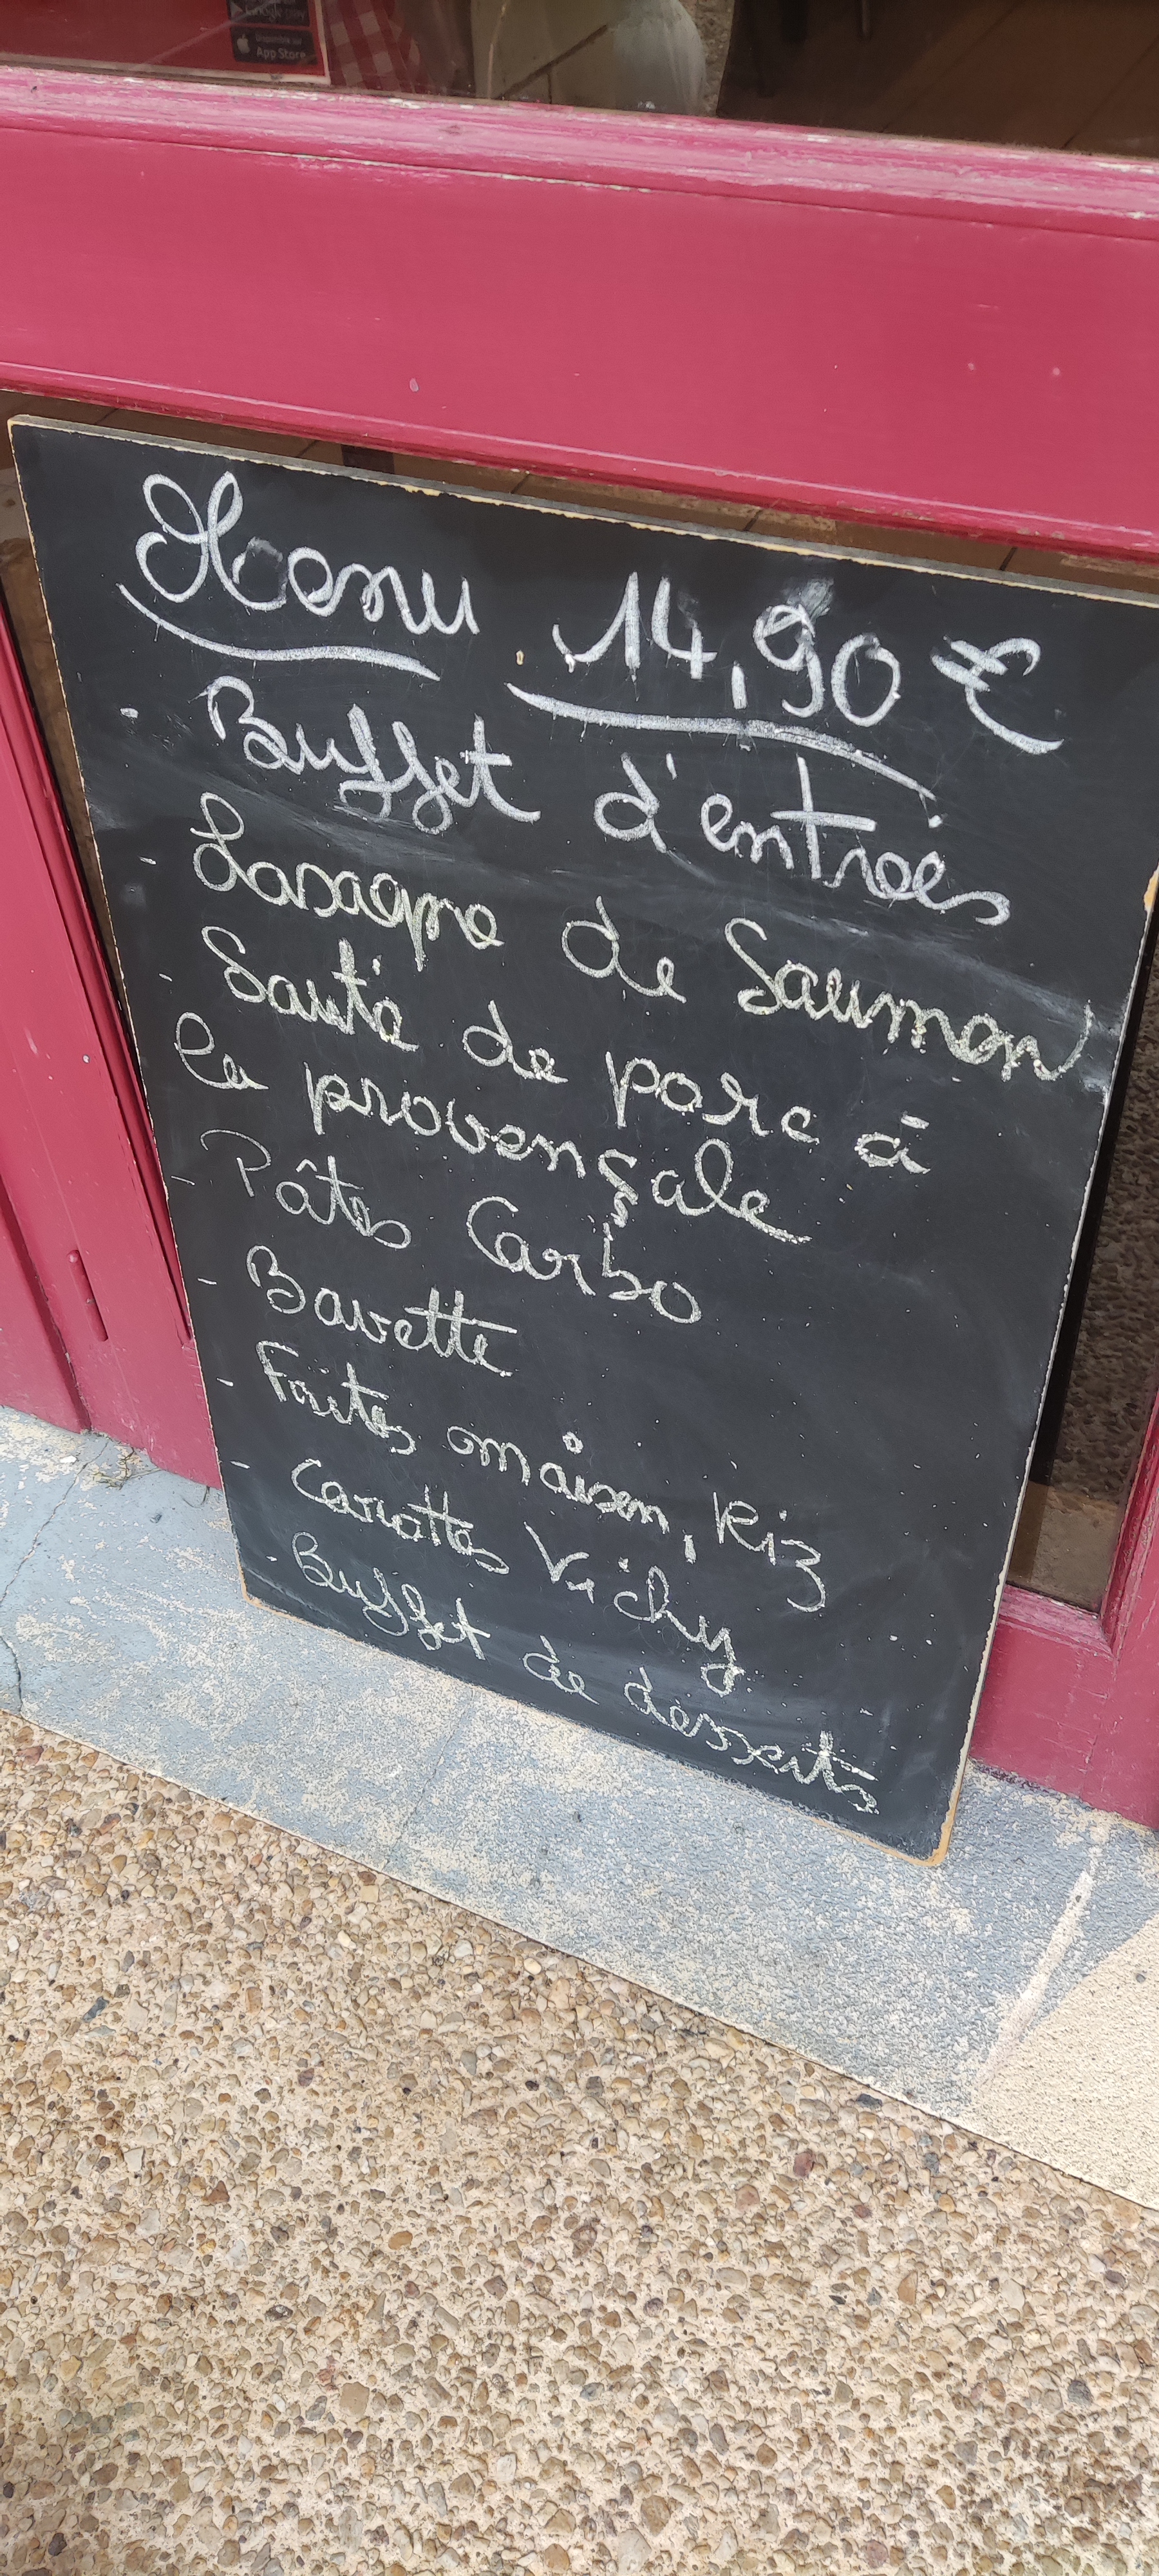 Google play
Disponible sur
App Store
Menu 14,90 €
- Buffet d'entrées
- Lasagne de Saumon
- Sauté de porc à
la provençale
- Pâtes Carbo
- Bavette
- Frites maison, Riz
- Carottes Vichy
- Buffet de desserts